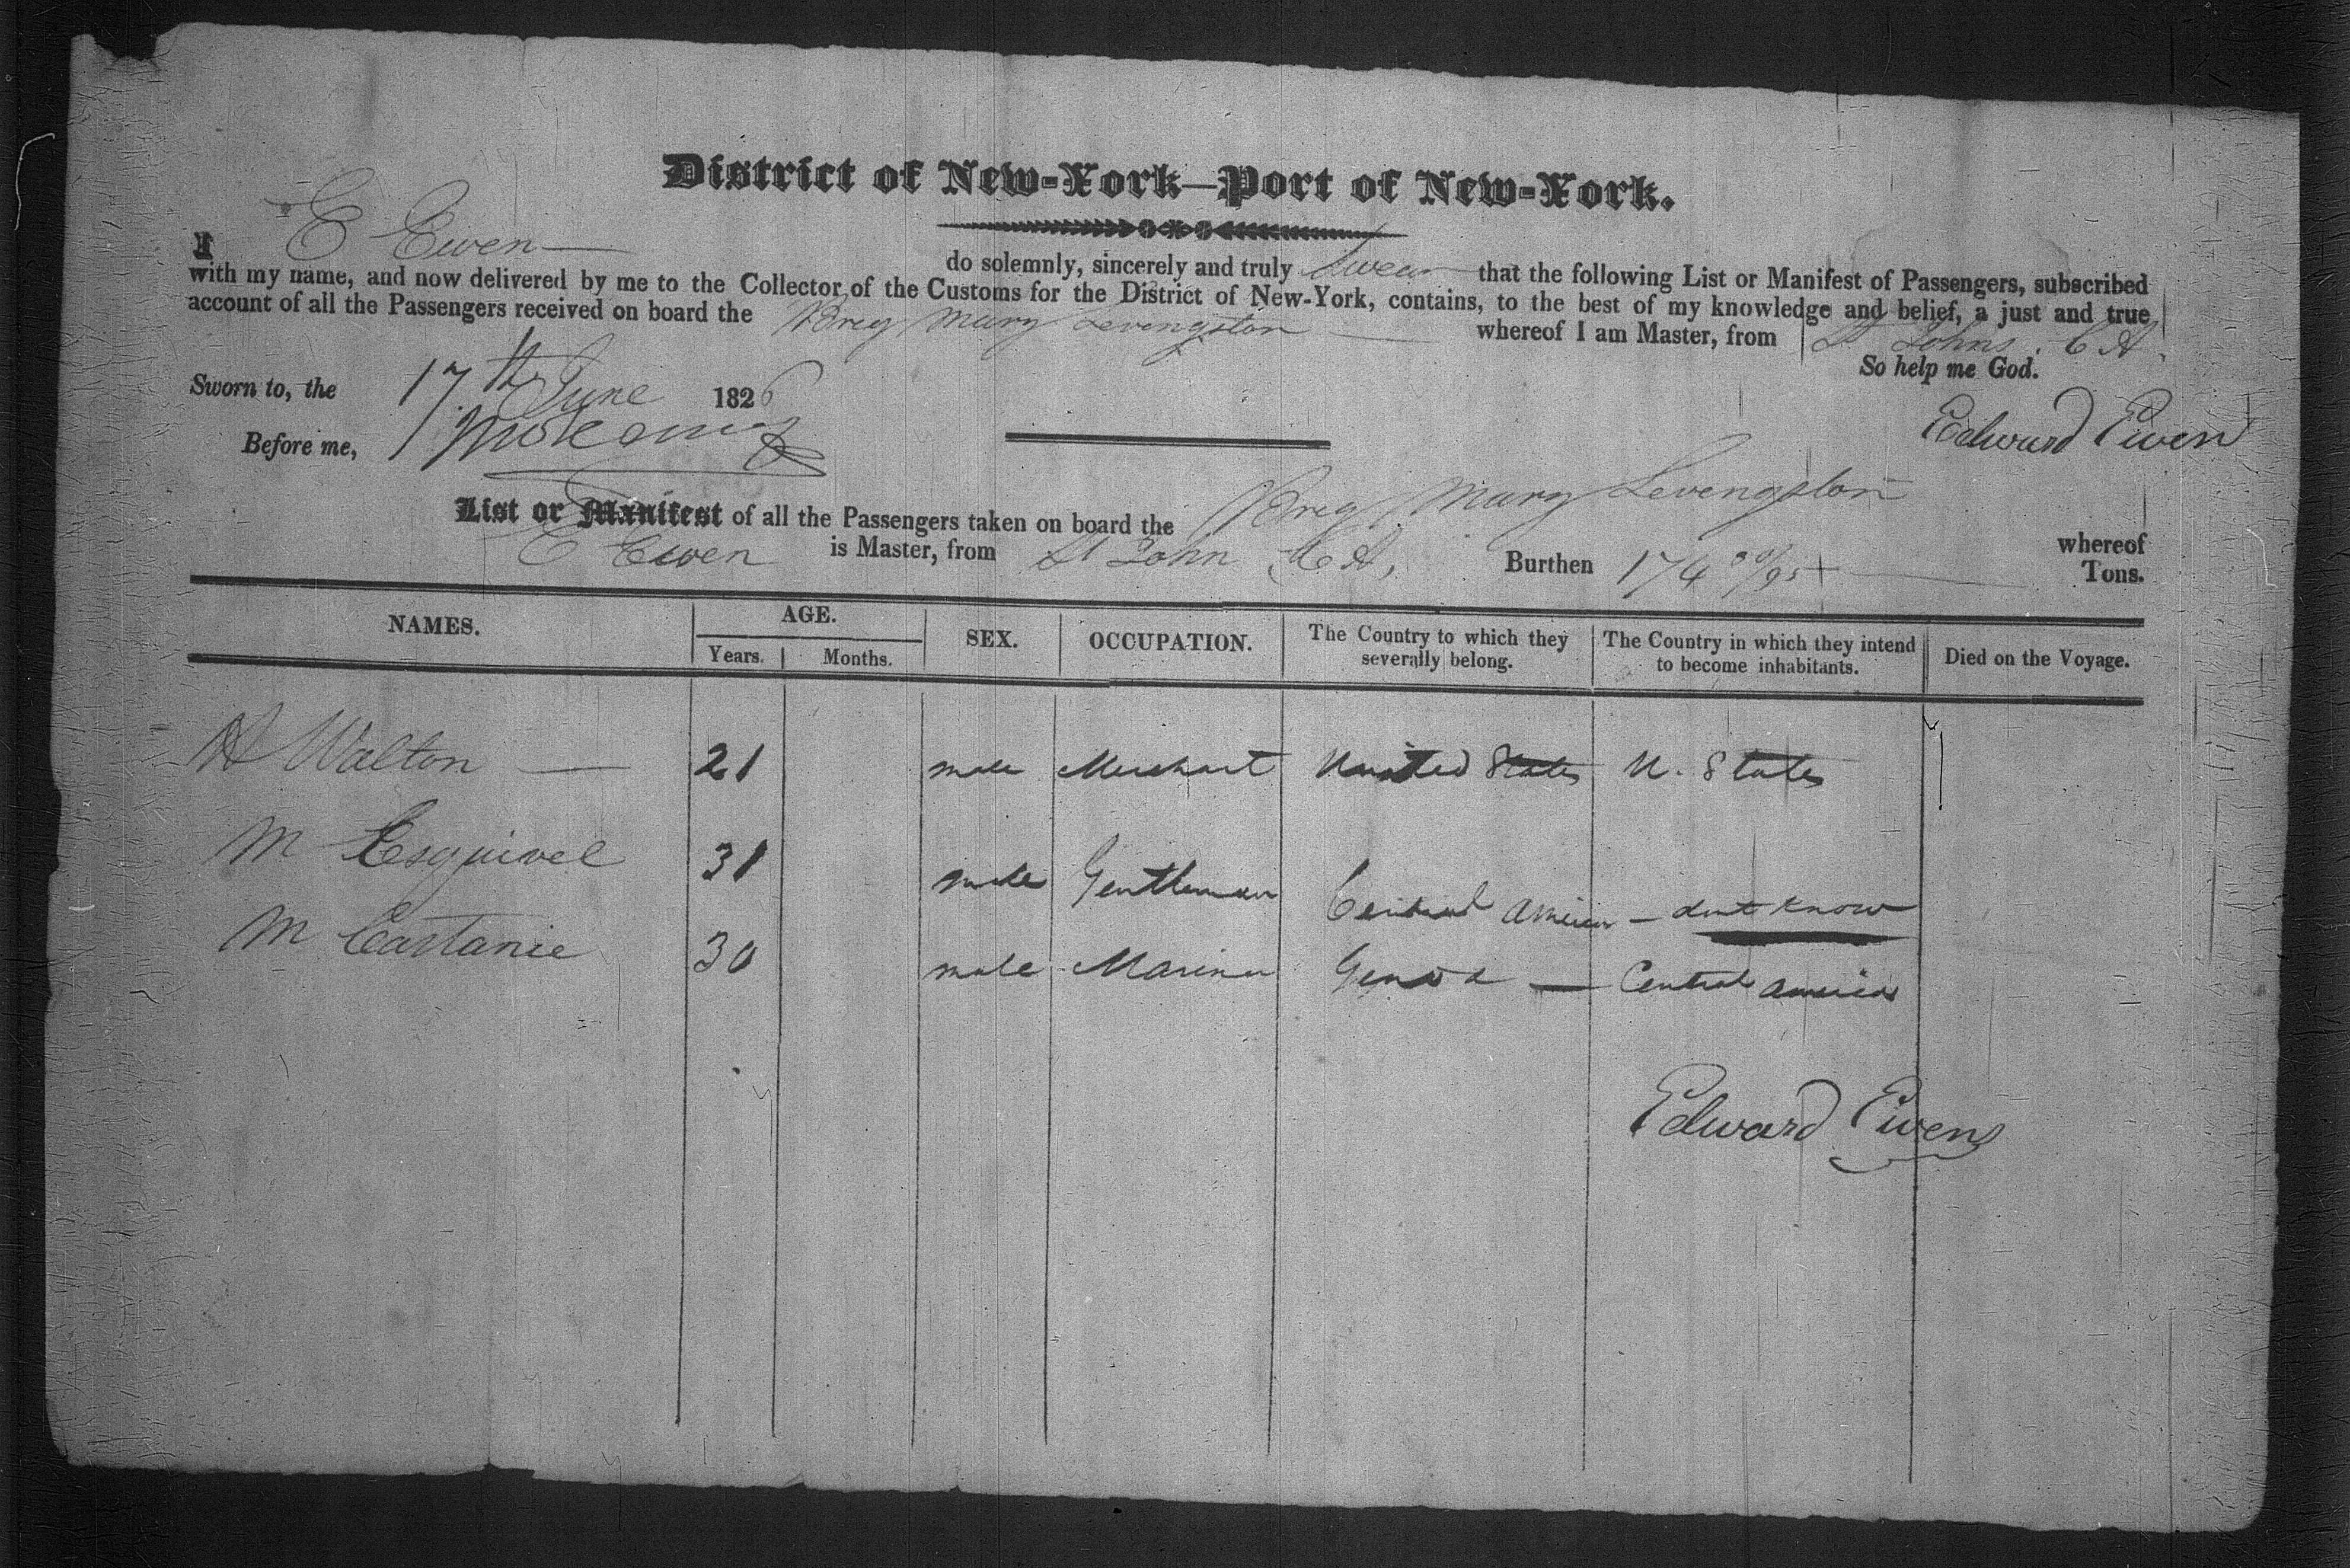 District of New-York—Port of New-York.
I E Ewen do solemnly, sincerely and truly swear that the following List or Manifest of Passengers, subscribed
with my name, and now delivered by me to the Collector of the Customs for the District of New-York, contains, to the best of my knowledge and belief, a just and true
account of all the Passengers received on board the Breg Mary Levengston whereof I am Master, from St Johns, C A.
So help me God.
Sworn to, the 17th June 1826
Edward Ewen
Before me,
List or Manifest of all the Passengers taken on board the Breg Mary Levengston whereof
E Ewen is Master, from St John C A, Burthen 174 30/95 Tons.
NAMES. AGE. SEX. OCCUPATION. The Country to which they severally belong. The Country in which they intend to become inhabitants. Died on the Voyage.
Years. Months.
A Walton — 21 male Merchant United States U. States
M Esquivel 31 male Gentleman Central America — dont know
M Castanie 30 male Mariner Genoa — Central America
Edward Ewen